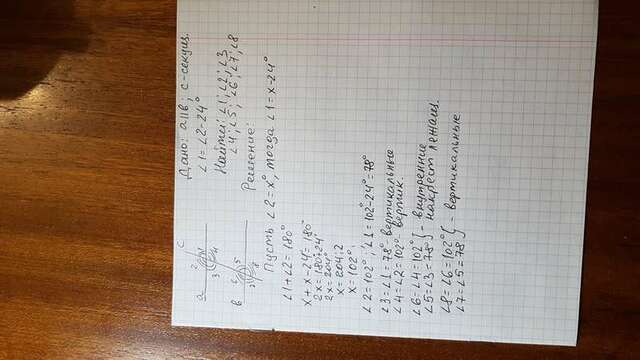 Дано: a||в; c-секущ.
∠1=∠2-24°
Найти: ∠1; ∠2; ∠3
∠4; ∠5; ∠6; ∠7; ∠8
Решение:
a
c
2 1
3 4
в
6 5
7 8
Пусть ∠2=x°, тогда ∠1=x-24°
∠1+∠2=180°
x+x-24=180°
2x=180+24°
2x=204°
x=204:2
x=102°.
∠2=102°; ∠1=102°-24°=78°
∠3=∠1=78° вертикальные
∠4=∠2=102° вертик.
∠6=∠4=102° } - внутренние
∠5=∠3=78° } накрест лежащ.
∠8=∠6=102° } - вертикальные
∠7=∠5=78° }